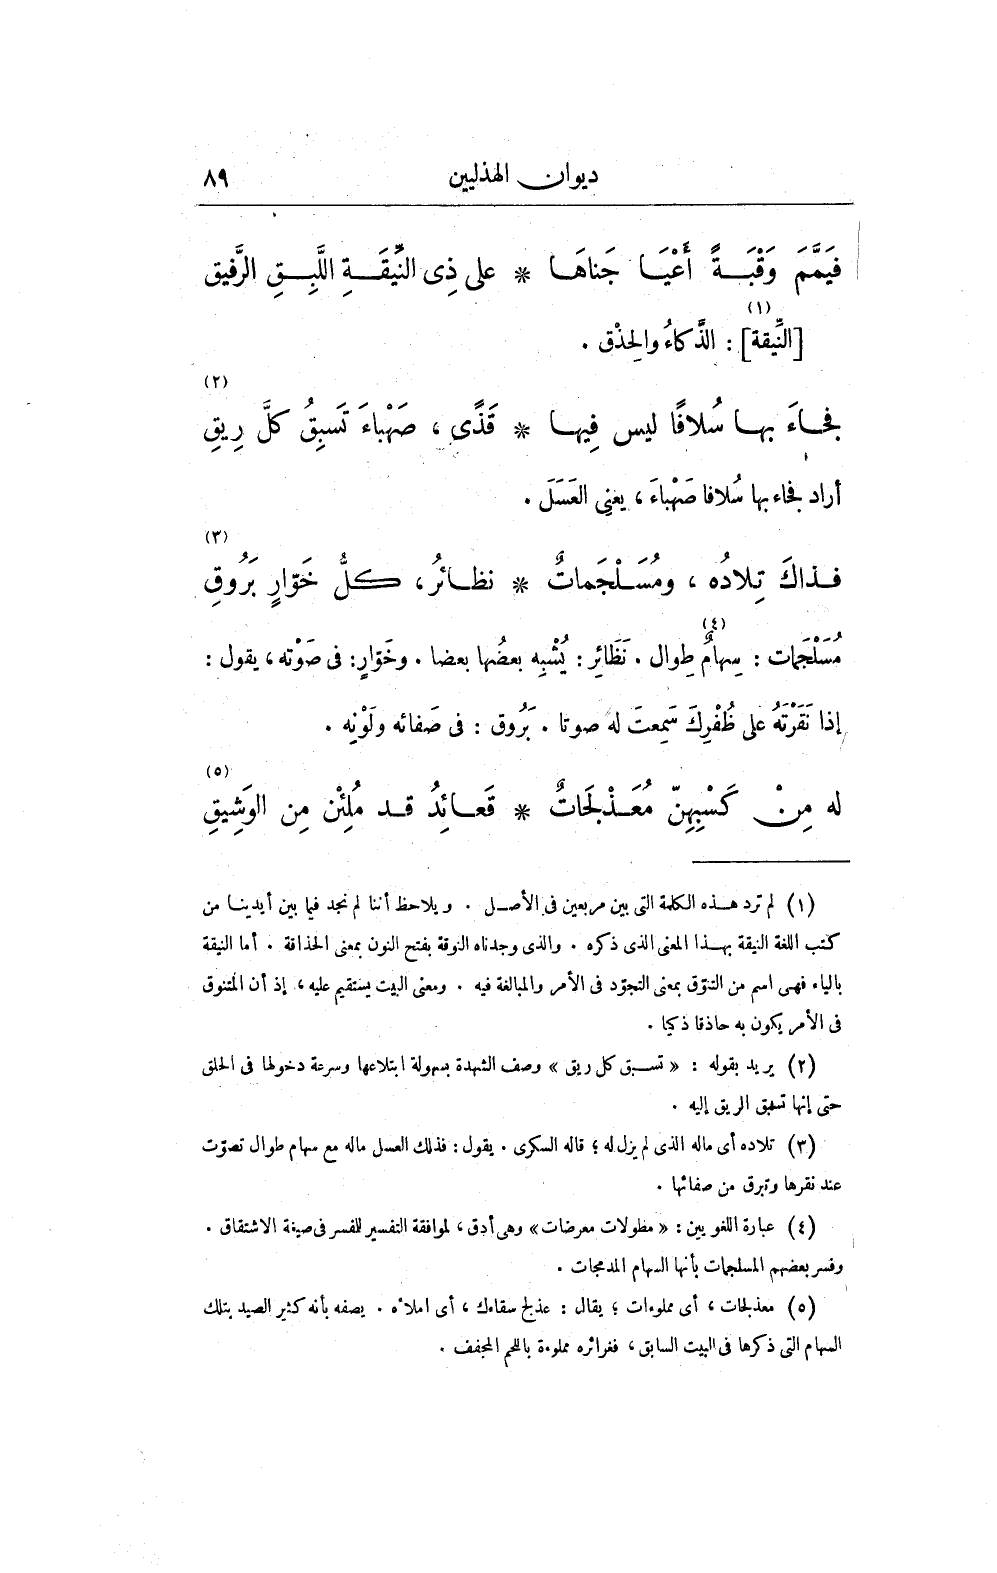 ديوان الهذليين ٨٩
فَيَمَّمَ وَقْبَةً أَعْيَا جَناهَا * على ذِى النِّيقَةِ اللَّبِقِ الرَّفيق
[النِّيقة] (١) : الذَّكاءُ والحِذْق .
فجاءَ بها سُلافًا ليس فِيها * قَذًى ، صَهْباءَ تَسبِقُ كلَّ رِيقِ (٢)
أراد فجاء بها سُلافا صَهْباءَ ، يعنِى العَسَلَ .
فذاكَ تِلادُه ، ومُسَلْجَماتٌ * نظائرُ ، كلُّ خَوّارٍ بَرُوقِ (٣)
مُسَلْجَمات : سِهامٌ طِوال (٤) . نَظَائِر : يُشْبِه بعضُها بعضا . وخَوّارٍ : فى صَوْته ، يقول :
إذا نَقَرْتَهُ على ظُفْرِكَ سَمِعتَ له صوتا . بَرُوق : فى صَفائه ولَوْنِه .
له مِنْ كَسْبِهِنّ مُعَذْلَجَاتٌ * قَعائدُ قد مُلِئن مِن الوَشِيقِ (٥)
(١) لم ترد هذه الكلمة التى بين مربعين فى الأصل . ويلاحظ أننا لم نجد فيما بين أيدينا من
كتب اللغة النيقة بهذا المعنى الذى ذكره . والذى وجدناه النوقة بفتح النون بمعنى الحذاقة . أما النيقة
بالياء فهى اسم من التنوّق بمعنى التجوّد فى الأمر والمبالغة فيه . ومعنى البيت يستقيم عليه ، إذ أن المتنوق
فى الأمر يكون به حاذقا ذكيا .
(٢) يريد بقوله : « تسبق كل ريق » وصف الشهدة بسهولة ابتلاعها وسرعة دخولها فى الحلق
حتى إنها تسبق الريق إليه .
(٣) تلاده أى ماله الذى لم يزل له ؛ قاله السكرى . يقول : فذلك العسل ماله مع سهام طوال تصوّت
عند نقرها وتبرق من صفائها .
(٤) عبارة اللغويين : « مطولات معرضات » وهى أدق ، لموافقة التفسير للفسر فى صيغة الاشتقاق .
وفسر بعضهم المسلجمات بأنها السهام المدمجات .
(٥) معذلجات ، أى مملوءات ؛ يقال : عذلج سقاءك ، أى املأه . يصفه بأنه كثير الصيد بتلك
السهام التى ذكرها فى البيت السابق ، فغرائره مملوءة باللحم المجفف .